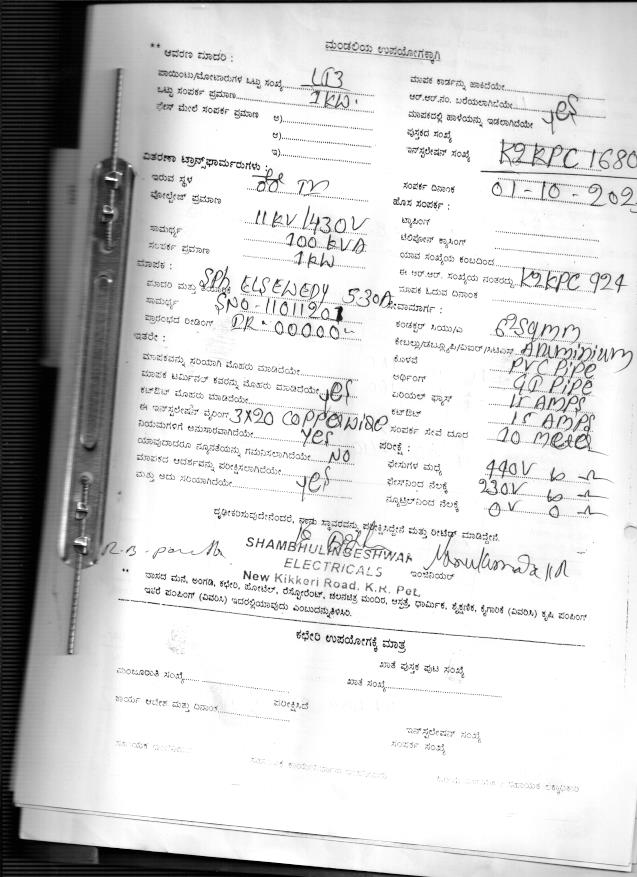 ಮಂಡಲಿಯ ಉಪಯೋಗಕ್ಕಾಗಿ
** ಆವರಣ ಮಾದರಿ :
ಪಾಯಿಂಟು/ಮೋಟಾರುಗಳ ಒಟ್ಟು ಸಂಖ್ಯೆ LT3
ಒಟ್ಟು ಸಂಪರ್ಕ ಪ್ರಮಾಣ 1KW.
ಫೇಸ್ ಮೇಲೆ ಸಂಪರ್ಕ ಪ್ರಮಾಣ ಅ)
ಆ)
ಇ)
ವಿತರಣಾ ಟ್ರಾನ್ಸ್‌ಫಾರ್ಮರುಗಳು :
ಇರುವ ಸ್ಥಳ
ವೋಲ್ಟೇಜ್ ಪ್ರಮಾಣ 11KV/430V
ಸಾಮರ್ಥ್ಯ 100 KVA
ಸಂಪರ್ಕ ಪ್ರಮಾಣ 1KW
ಮಾಪಕ :
ಮಾದರಿ ಮತ್ತು SPh 5-30A
ಸಾಮರ್ಥ್ಯ SNO-11011201
ಪ್ರಾರಂಭದ ರೀಡಿಂಗ್ DR-00000-
ಇತರೇ :
ಮಾಪಕವನ್ನು ಸರಿಯಾಗಿ ಮೊಹರು ಮಾಡಿದೆಯೇ
ಮಾಪಕ ಟರ್ಮಿನಲ್ ಕವರನ್ನು ಮೊಹರು ಮಾಡಿದೆಯೇ yes
ಕಟ್‌ಔಟ್ ಮೊಹರು ಮಾಡಿದೆಯೇ
ಈ ಇನ್‌ಸ್ಟಲೇಷನ್ ವೈರಿಂಗ್ 3X20 COPPERWIRE
ನಿಯಮಗಳಿಗೆ ಅನುಸಾರವಾಗಿದೆಯೇ Yes
ಯಾವುದಾದರೂ ನ್ಯೂನತೆಯನ್ನು ಗಮನಿಸಲಾಗಿದೆಯೇ NO
ಮಾಪಕದ ಆದರ್ಶವನ್ನು ಪರೀಕ್ಷಿಸಲಾಗಿದೆಯೇ
ಮತ್ತು ಅದು ಸರಿಯಾಗಿದೆಯೇ yes
ಮಾಪಕ ಕಾರ್ಡನ್ನು ಹಾಕಿದೆಯೇ
ಆರ್.ಆರ್.ನಂ. ಬರೆಯಲಾಗಿದೆಯೇ
ಮಾಪಕದಲ್ಲಿ ಹಾಳೆಯನ್ನು ಇಡಲಾಗಿದೆಯೇ yes
ಪುಸ್ತಕದ ಸಂಖ್ಯೆ
ಇನ್‌ಸ್ಟಲೇಷನ್ ಸಂಖ್ಯೆ K2KPC 1680
ಸಂಪರ್ಕ ದಿನಾಂಕ 01-10-202
ಹೊಸ ಸಂಪರ್ಕ :
ಟ್ಯಾಪಿಂಗ್
ಟೆಲಿಫೋನ್ ಕ್ರಾಸಿಂಗ್
ಯಾವ ಸಂಖ್ಯೆಯ ಕಂಬದಿಂದ
ಈ ಆರ್.ಆರ್. ಸಂಖ್ಯೆಯ ನಂತರದ್ದು K2KPC 924
ಮಾಪಕ ಓದುವ ದಿನಾಂಕ
ಸೇವಾಮಾರ್ಗ :
ಕಂಡಕ್ಟರ್ ಸಿಯು/ಎ
ಕೇಬಲ್ಲು/ಡಬ್ಲ್ಯೂಪಿ/ವಿಐಆರ್/ಸಿಟಿಎಸ್ Aluminium
ಕೊಳವೆ PVC Pipe
ಅರ್ಥಿಂಗ್ GI Pipe
ಏರಿಯಲ್ ಫ್ಯೂಸ್ 15 AMPS
ಕಟ್‌ಔಟ್ 15 AMPS
ಸಂಪರ್ಕ ಸೇವೆ ದೂರ 10 meter
ಪರೀಕ್ಷೆ :
ಫೇಸುಗಳ ಮಧ್ಯೆ 440V
ಫೇಸ್‌ನಿಂದ ನೆಲಕ್ಕೆ 230V
ನ್ಯೂಟ್ರಲ್‌ನಿಂದ ನೆಲಕ್ಕೆ 0V
ದೃಢೀಕರಿಸುವುದೇನೆಂದರೆ, ನಾನು ಸ್ಥಾವರವನ್ನು ಪರೀಕ್ಷಿಸಿದ್ದೇನೆ ಮತ್ತು ರೀಟೆಡ್ ಮಾಡಿದ್ದೇನೆ.
SHAMBHULINGESHWAR
ELECTRICALS
New Kikkeri Road, K.R. Pet.
ಇಂಜಿನಿಯರ್
** ವಾಸದ ಮನೆ, ಅಂಗಡಿ, ಕಛೇರಿ, ಹೋಟೆಲ್, ರೆಸ್ಟೋರೆಂಟ್, ಚಲನಚಿತ್ರ ಮಂದಿರ, ಆಸ್ಪತ್ರೆ, ಧಾರ್ಮಿಕ, ಶೈಕ್ಷಣಿಕ, ಕೈಗಾರಿಕೆ (ವಿವರಿಸಿ) ಕೃಷಿ ಪಂಪಿಂಗ್
ಇತರೆ ಪಂಪಿಂಗ್ (ವಿವರಿಸಿ) ಇದರಲ್ಲಿಯಾವುದು ಎಂಬುದನ್ನುತಿಳಿಸಿರಿ.
ಕಛೇರಿ ಉಪಯೋಗಕ್ಕೆ ಮಾತ್ರ
ಖಾತೆ ಪುಸ್ತಕ ಪುಟ ಸಂಖ್ಯೆ
ಮಂಜೂರಾತಿ ಸಂಖ್ಯೆ ಖಾತೆ ಸಂಖ್ಯೆ
ಕಾರ್ಯ ಆದೇಶ ಮತ್ತು ದಿನಾಂಕ ಪರೀಕ್ಷಿಸಿದೆ
ಇನ್‌ಸ್ಟಲೇಷನ್ ಸಂಖ್ಯೆ
ಸಂಪರ್ಕ ಸಂಖ್ಯೆ